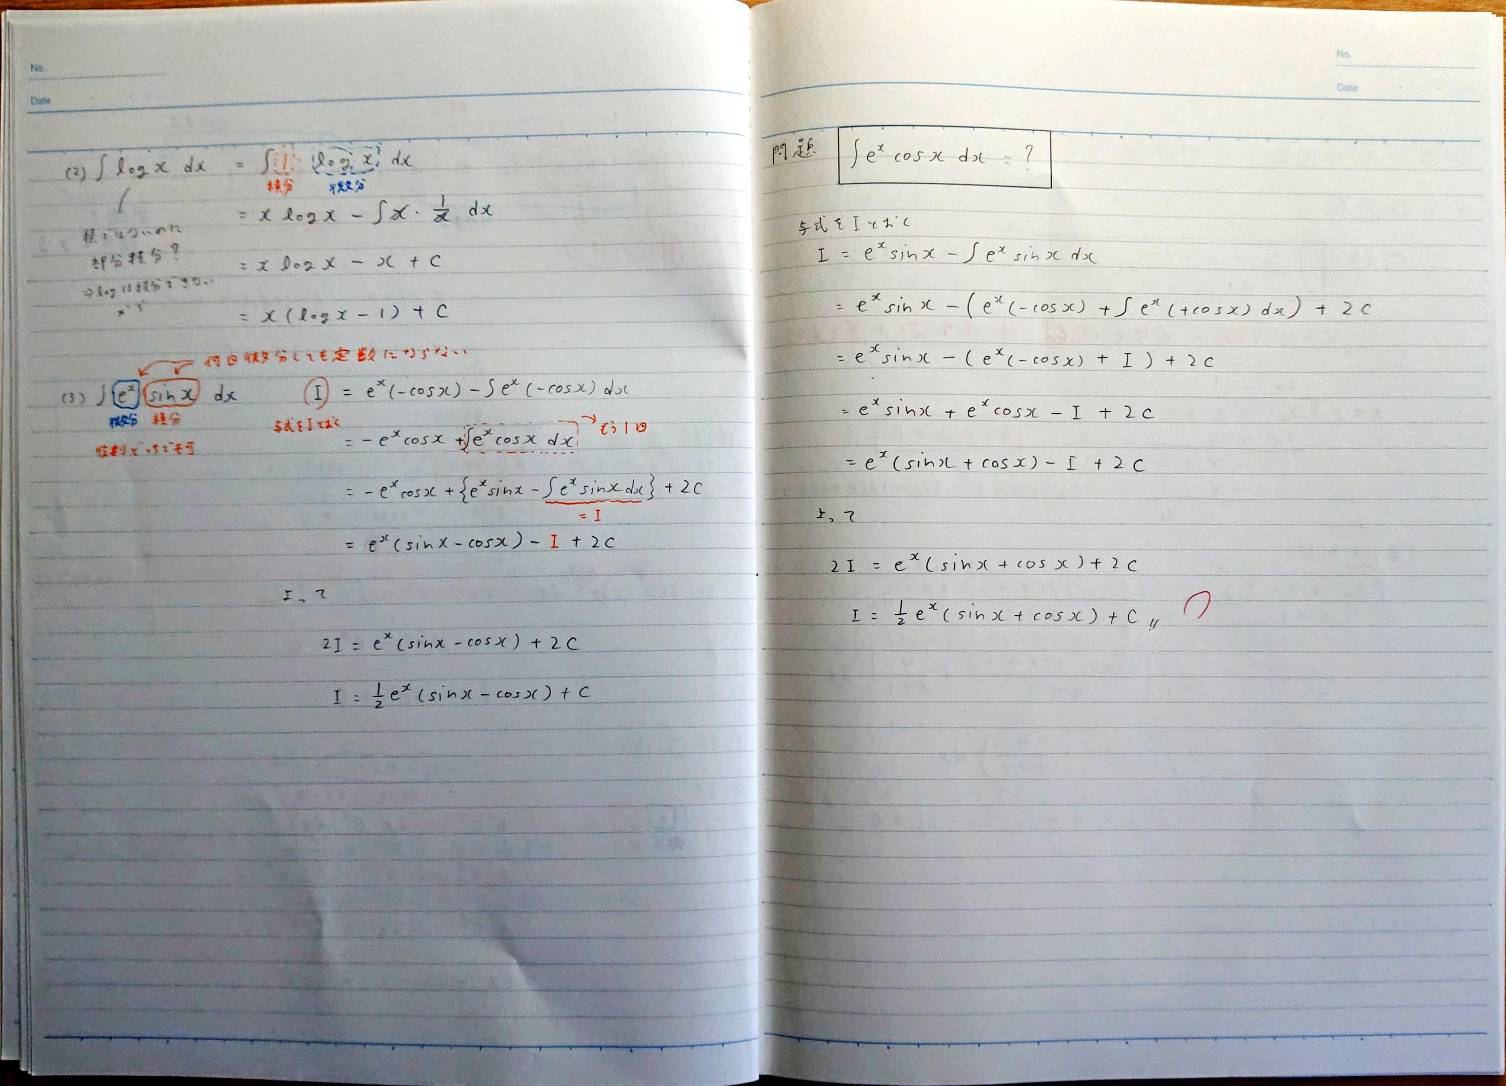 No.
Date
(2) ∫ log x dx = ∫ 1 · log x dx
積分 微分
= x log x − ∫ x · 1/x dx
積ではないのに
部分積分?
⇒ log は積分できない
= x log x − x + C
= x(log x − 1) + C
何回微分しても定数にならない
(3) ∫ e^x sin x dx I = e^x(−cos x) − ∫ e^x(−cos x) dx
微分 積分 与式をIとおく
役割どっちでも可
= −e^x cos x + ∫ e^x cos x dx → もう1回
= −e^x cos x + {e^x sin x − ∫ e^x sin x dx} + 2C
= I
= e^x(sin x − cos x) − I + 2C
よって
2I = e^x(sin x − cos x) + 2C
I = 1/2 e^x(sin x − cos x) + C
No.
Date
問題 ∫ e^x cos x dx = ?
与式をIとおく
I = e^x sin x − ∫ e^x sin x dx
= e^x sin x − (e^x(−cos x) + ∫ e^x(+cos x) dx) + 2C
= e^x sin x − (e^x(−cos x) + I) + 2C
= e^x sin x + e^x cos x − I + 2C
= e^x(sin x + cos x) − I + 2C
よって
2I = e^x(sin x + cos x) + 2C
I = 1/2 e^x(sin x + cos x) + C〃